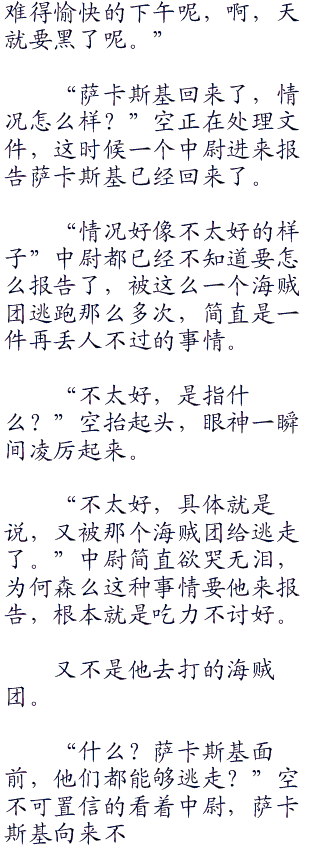 难得愉快的下午呢，啊，天
就要黑了呢。”
“萨卡斯基回来了，情
况怎么样？”空正在处理文
件，这时候一个中尉进来报
告萨卡斯基已经回来了。
“情况好像不太好的样
子”中尉都已经不知道要怎
么报告了，被这么一个海贼
团逃跑那么多次，简直是一
件再丢人不过的事情。
“不太好，是指什
么？”空抬起头，眼神一瞬
间凌厉起来。
“不太好，具体就是
说，又被那个海贼团给逃走
了。”中尉简直欲哭无泪，
为何森么这种事情要他来报
告，根本就是吃力不讨好。
又不是他去打的海贼
团。
“什么？萨卡斯基面
前，他们都能够逃走？”空
不可置信的看着中尉，萨卡
斯基向来不